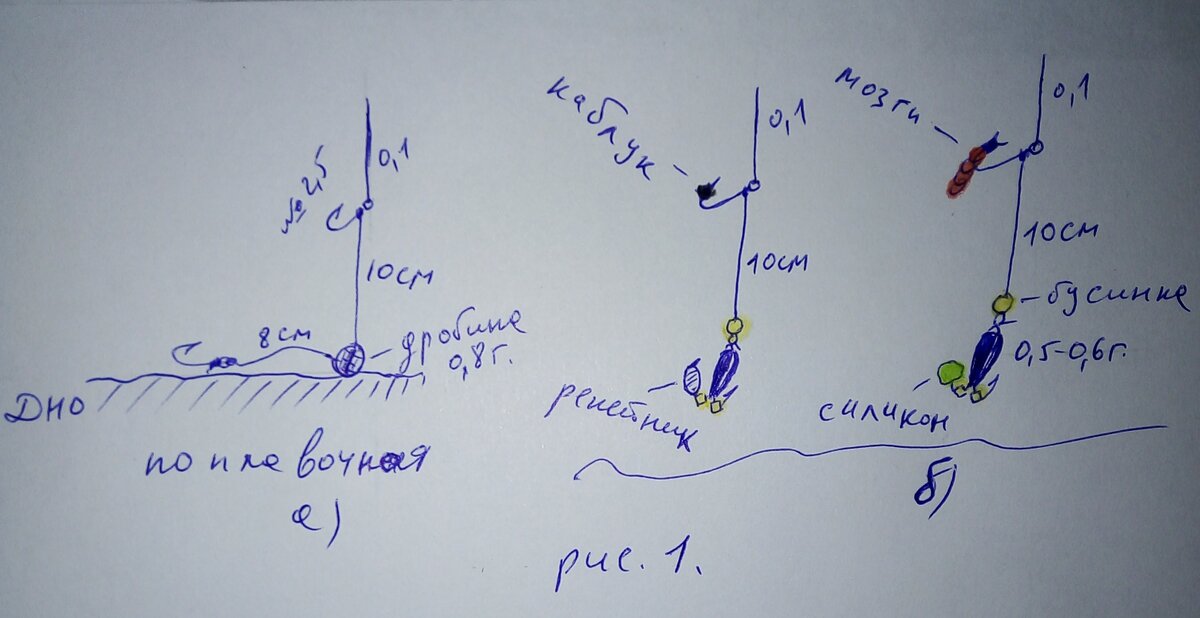 0,1
№2,5
10см
8см
дробина
0,8г.
ДНО
поплавочная
а)
каблук
0,1
10см
репейник
мозги
0,1
10см
бусинка
0,5-0,6г.
силикон
б)
рис. 1.